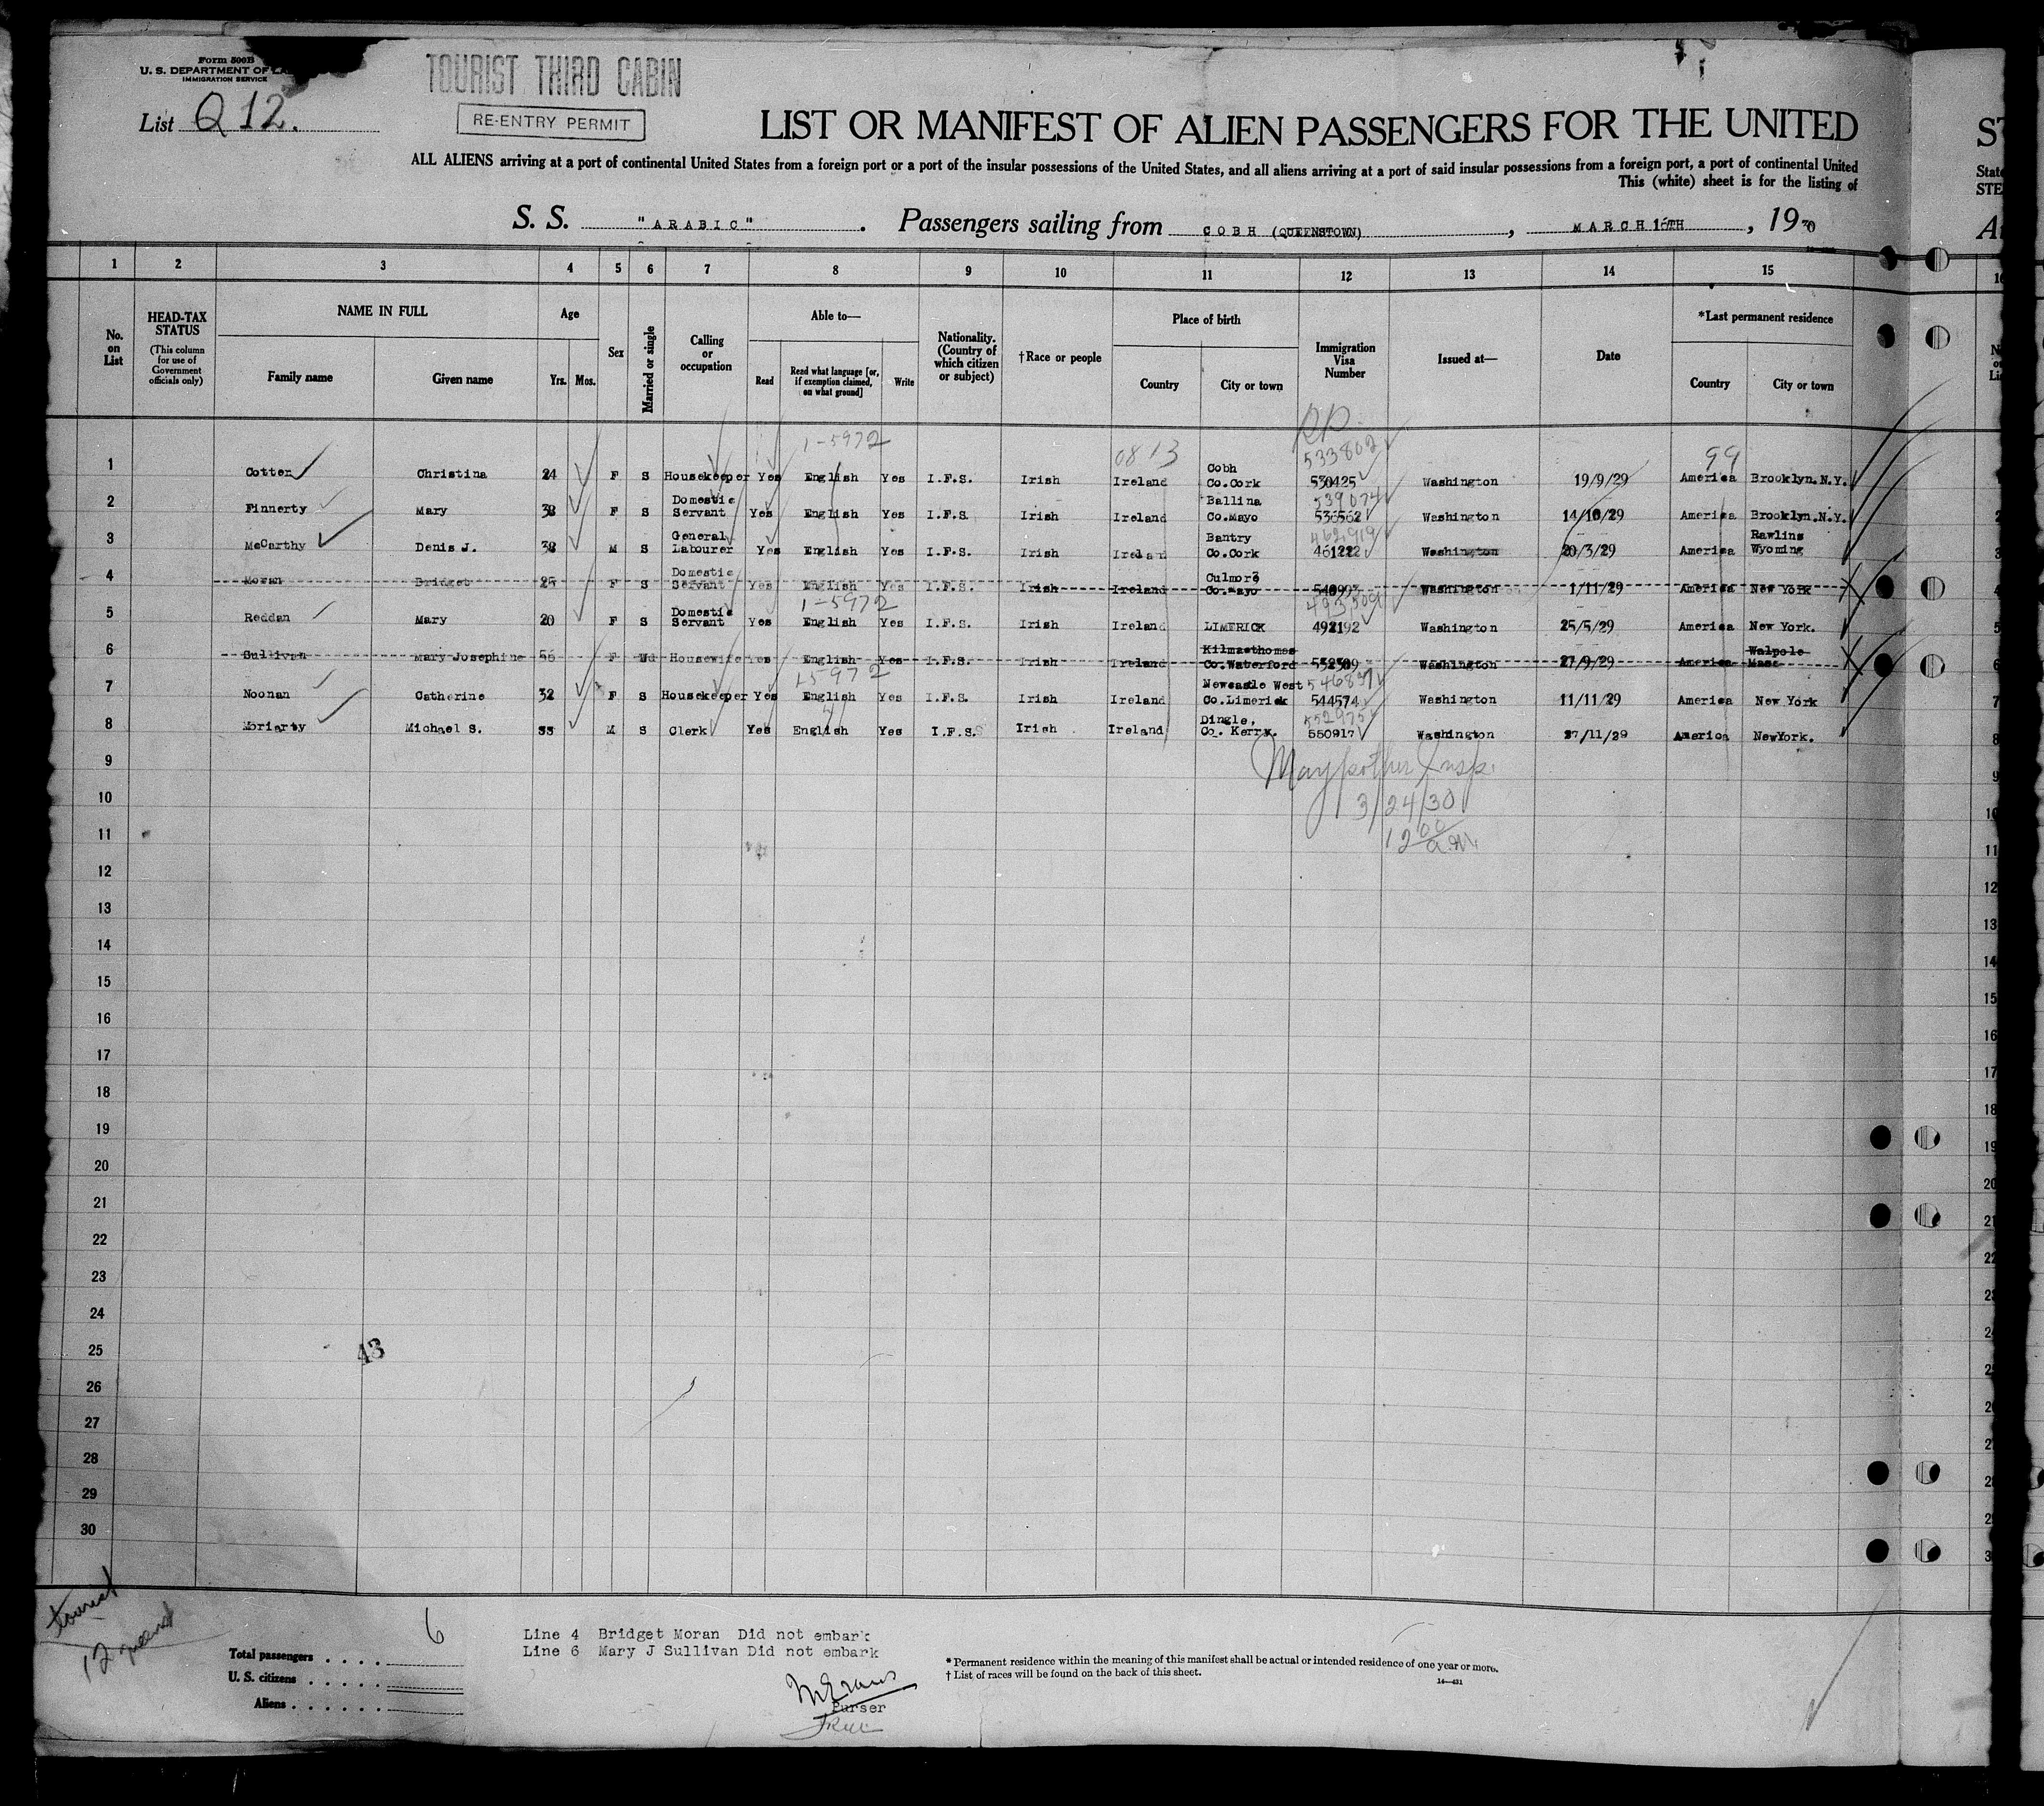 Form 500B
U. S. DEPARTMENT OF
IMMIGRATION SERVICE
TOURIST THIRD CABIN
RE-ENTRY PERMIT
List Q 12.
LIST OR MANIFEST OF ALIEN PASSENGERS FOR THE UNITED
ALL ALIENS arriving at a port of continental United States from a foreign port or a port of the insular possessions of the United States, and all aliens arriving at a port of said insular possessions from a foreign port, a port of continental United
This (white) sheet is for the listing of
S. S. "ARABIC" . Passengers sailing from COBH (QUEENSTOWN) , MARCH 16TH , 1930
1 2 3 4 5 6 7 8 9 10 11 12 13 14 15
No. on List
HEAD-TAX STATUS
(This column for use of Government officials only)
NAME IN FULL
Family name Given name
Age
Yrs. Mos.
Sex
Married or single
Calling or occupation
Able to—
Read Read what language [or, if exemption claimed, on what ground] Write
Nationality. (Country of which citizen or subject)
†Race or people
Place of birth
Country City or town
Immigration Visa Number
Issued at—
Date
*Last permanent residence
Country City or town
1-5972 0813 RP 533802 99
1 Cotter Christina 24 F S Housekeeper Yes English Yes I.F.S. Irish Ireland Cobh Co.Cork 530425 Washington 19/9/29 America Brooklyn.N.Y.
539074
2 Finnerty Mary F S Domestic Servant Yes English Yes I.F.S Irish Ireland Ballina Co.Mayo 536562 Washington 14/10/29 America Brooklyn.N.Y.
462919
3 McCarthy Denis J. M S General Labourer Yes English Yes I.F.S. Irish Ireland Bantry Co.Cork 461222 Washington 20/3/29 America Rawlins Wyoming
4 Moran Bridget 25 F S Domestic Servant Yes English Yes I.F.S. Irish Ireland Culmore Co.Mayo Washington 1/11/29 America New York
1-5972
5 Reddan Mary 20 F S Domestic Servant Yes English Yes I.F.S. Irish Ireland LIMERICK 492192 Washington 25/5/29 America New York.
6 Sullivan Mary Josephine F Wd Housewife Yes English Yes I.F.S. Irish Ireland Kilmacthomas Co.Waterford Washington 27/9/29 America Walpole Mass
1-5972 546897
7 Noonan Catherine 32 F S Housekeeper Yes English Yes I.F.S. Irish Ireland Newcastle West Co.Limerick 544574 Washington 11/11/29 America New York
552975
8 Moriarty Michael S. 33 M S Clerk Yes English Yes I.F.S. Irish Ireland Dingle, Co. Kerry. 550917 Washington 27/11/29 America NewYork.
9
Insp.
10
3/24/30
11
12 00 a.m.
12
13
14
15
16
17
18
19
20
21
22
23
24
25
43
26
27
28
29
30
tourist
12
6
Total passengers . . . .
U. S. citizens . . . . .
Aliens . . . . . .
Line 4 Bridget Moran Did not embark
Line 6 Mary J Sullivan Did not embark
Purser
* Permanent residence within the meaning of this manifest shall be actual or intended residence of one year or more.
† List of races will be found on the back of this sheet.
14—431